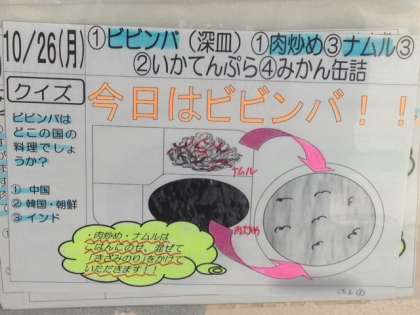 10/26(月) ①ビビンバ(深皿) ①肉炒め③ナムル③
②いかてんぷら④みかん缶詰
クイズ
今日はビビンバ!!
ビビンバは
どこの国の
料理でしょ
うか?
① 中国
② 韓国・朝鮮
③ インド
ナムル
肉炒め
・肉炒め・ナムルは
ごはんにのせ、混ぜて
「きざみのり」をかけて
いただきます!!